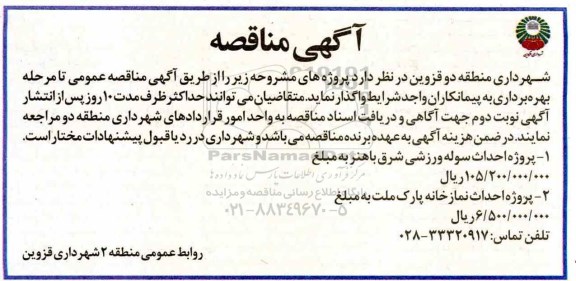 آگهی مناقصه
شهرداری منطقه دو قزوین در نظر دارد پروژه های مشروحه زیر را از طریق آگهی مناقصه عمومی تا مرحله
بهره برداری به پیمانکاران واجد شرایط واگذار نماید. متقاضیان می توانند حداکثر ظرف مدت ۱۰ روز پس از انتشار
آگهی نوبت دوم جهت آگاهی و دریافت اسناد مناقصه به واحد امور قراردادهای شهرداری منطقه دو مراجعه
نمایند. در ضمن هزینه آگهی به عهده برنده مناقصه می باشد و شهرداری در رد یا قبول پیشنهادات مختار است.
۱- پروژه احداث سوله ورزشی شرق باهنر به مبلغ
۱۰۵/۲۰۰/۰۰۰/۰۰۰ ریال
۲- پروژه احداث نمازخانه پارک ملت به مبلغ
۶/۵۰۰/۰۰۰/۰۰۰ ریال
تلفن تماس: ۳۳۳۲۰۹۱۷-۰۲۸
روابط عمومی منطقه ۲ شهرداری قزوین
ParsNamadData
مرکز فرآوری اطلاعات پارس نماد داده ها
پایگاه اطلاع رسانی مناقصه و مزایده
۰۲۱-۸۸۳۴۹۶۷۰-۵